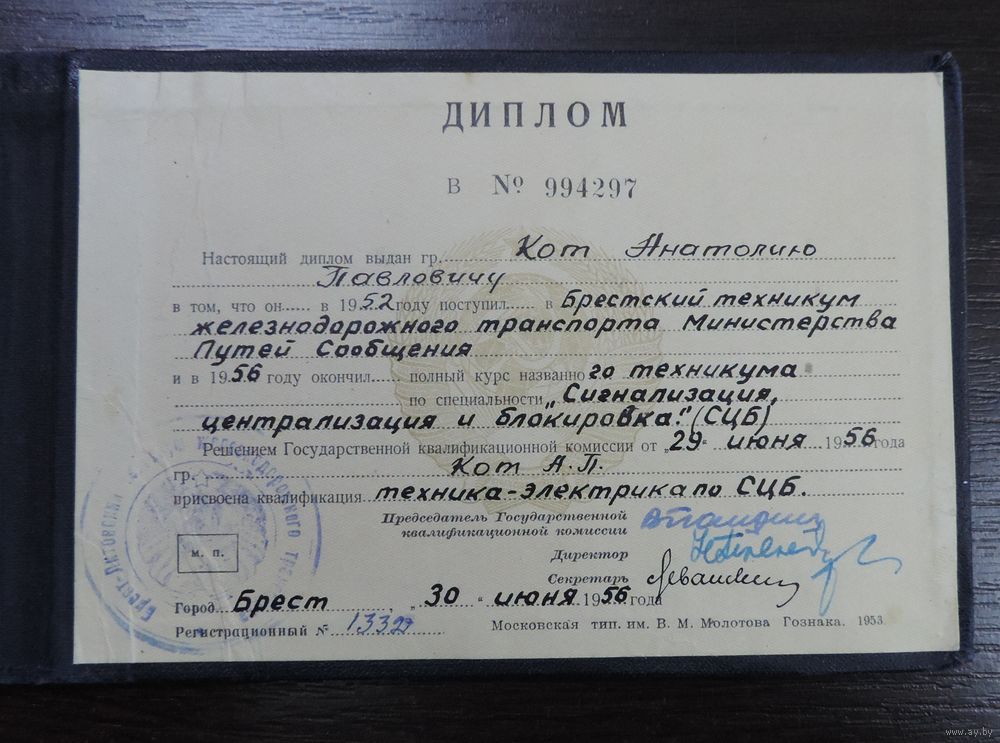 ДИПЛОМ
В № 994297
Настоящий диплом выдан гр. Кот Анатолию
Павловичу
в том, что он в 1952 году поступил в Брестский техникум
железнодорожного транспорта Министерства
Путей Сообщения
и в 1956 году окончил полный курс названного техникума
по специальности „Сигнализация,
централизация и блокировка." (СЦБ)
Решением Государственной квалификационной комиссии от „29" июня 1956 года
гр. Кот А.П.
присвоена квалификация техника-электрика по СЦБ.
Председатель Государственной
квалификационной комиссии
Директор
м. п.
Секретарь
Город Брест, „30" июня 1956 года
Регистрационный №
Московская тип. им. В. М. Молотова Гознака. 1953
www.ay.by